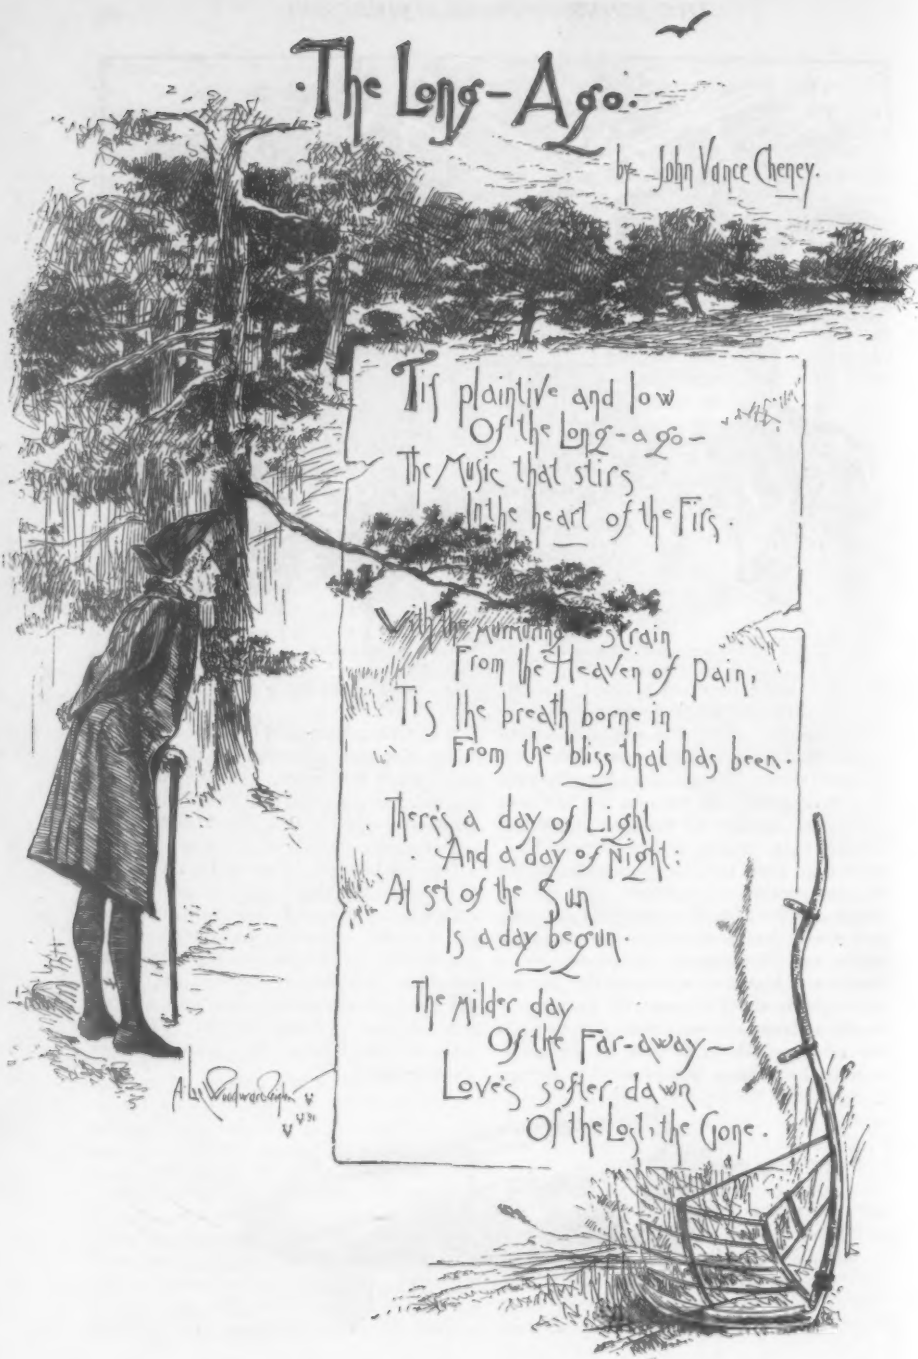 ·The Long-Ago·
by John Vance Cheney.
Tis plaintive and low
Of the Long-ago-
The Music that stirs
In the heart of the Firs.
With the murmuring strain
From the Heaven of pain,
Tis the breath borne in
From the bliss that has been.
There's a day of Light
And a day of Night:
At set of the Sun
Is a day begun.
The milder day
Of the Far-away-
Love's softer dawn
Of the Lost, the Gone.